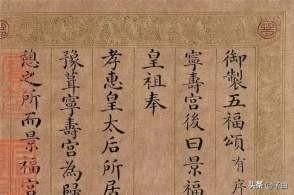 御製五福頌有序
寧壽宮後曰景福
皇祖奉
孝惠皇太后所居
豫葺寧壽宮為歸
憩之所而景福宮
头条 @子田